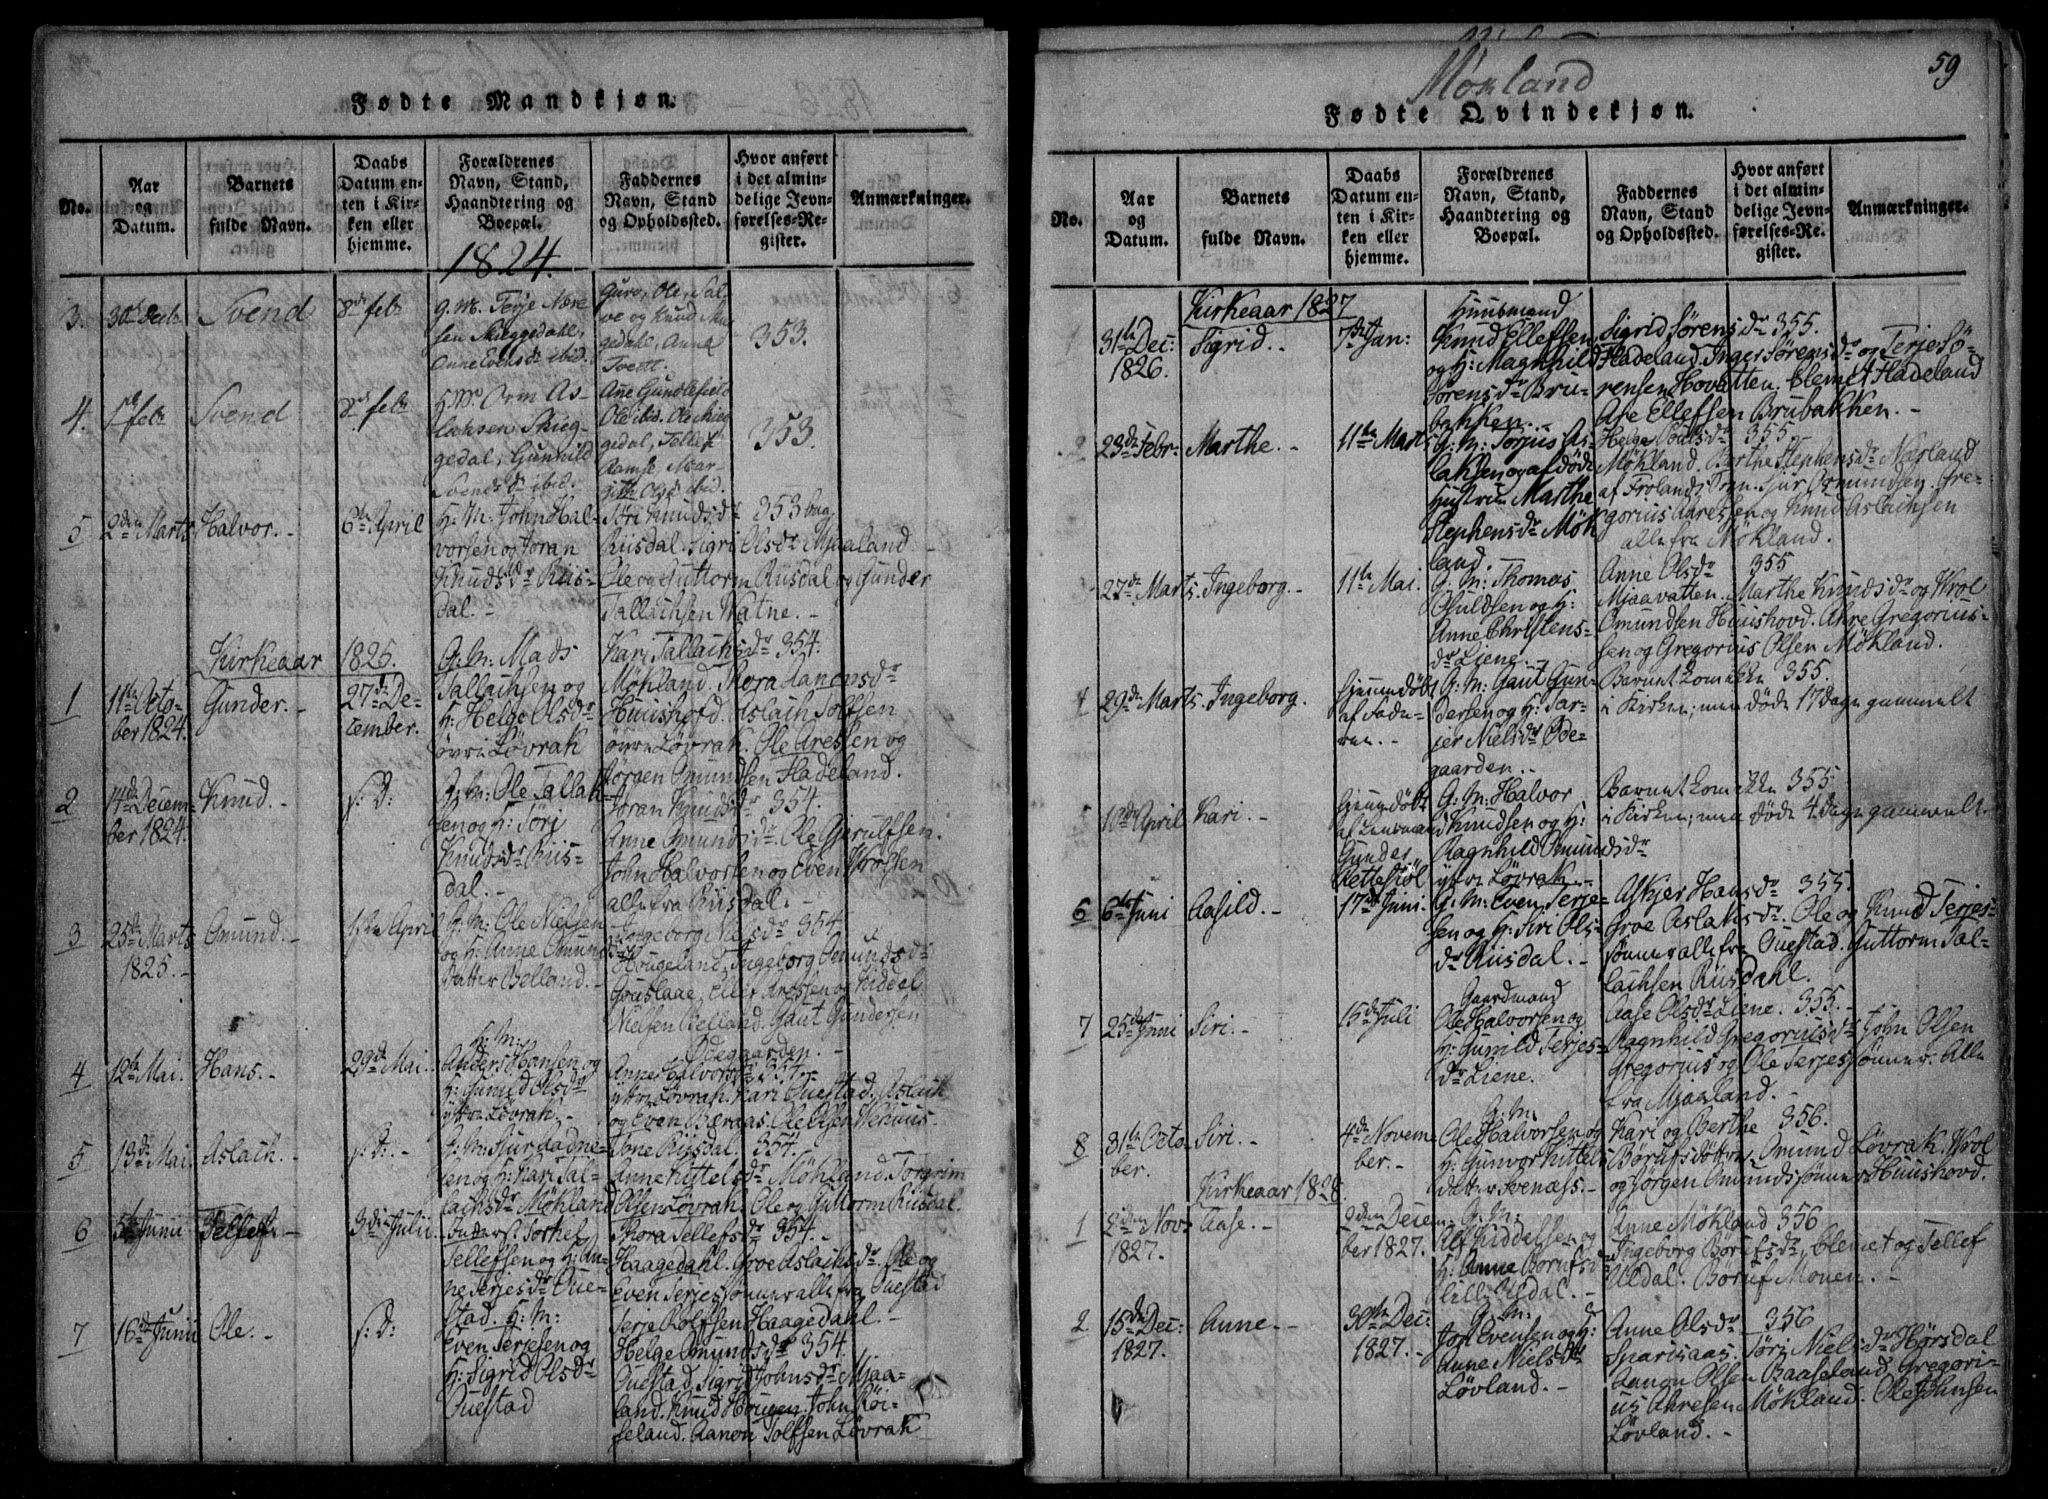 Fødte Mandkjøn.
No.
Aar
og
Datum.
Barnets
fulde Navn.
Daabs
Datum en-
ten i Kir-
ken eller
hjemme.
Forældrenes
Navn, Stand,
Haandtering og
Boepæl.
Faddernes
Navn, Stand
og Opholdssted.
Hvor anført
i det almin-
delige Jevn-
førelses-Re-
gister.
Anmærkninger.
1824.
3.
Svend
8de feb
G. M. Terje
sen Skeggedahl,
ibid.
Guro, Ole, Sal-
ve og Knud
gedahl, Anna
Tvett.
353.
4.
feb
Svend
8de feb
Orm As-
lachsen Skieg-
gedal, Gunhild
Svends dr ibid.
Ane
Ole ibid. Ole Skieg-
gedal, Tellef
Ramse, Mar-
gith Olsdr ibid.
353.
5
2den Marts
Halvor.
6te April
G. M. John Hal-
vorsen og Joran
Knuds dr Riis-
dal.
Siri Knuds dr 353 bag.
Riisdal. Sigri Olsdr Mjaaland
Ole og Guttorm Riisdal og Gunder
Tallachsen Watne.
Kirkeaar 1825.
1
11te Octo-
ber 1824.
Gunder.
27de De-
cember.
G: M: Mads
Tallachsen og
H: Helge Olsdr
øvre Løvrak
Kari Tallachs dr 354.
Møkland. Thora Aanensdr
Huushofd. Aslach Tolfsen
øvre Løvrak. Ole Aresen og
Jörgen Omundsen Hadeland.
2
14de Decem-
ber 1824.
Knud.
s: D:
G: M: Ole Tallak-
sen og H: Töri
Knudsdr Riis-
dal.
Joran Knuds dr 354.
Anne Omundsdr Ole Gjerulfsen.
John Halvorsen og Even Wrolsen
alle fra Riisdal.
3
25de Marts
1825.
Omund.
April
G: M: Ole Nielsen
og H: Anne Omunds
datter Belland.
Ingeborg Niels dr 354
Hougeland, Ingeborg Omunds dr
Gouslaae, Ellef Aresen og Kiddel
Nielsen Belland. Gaut Gundersen
Ødegaarden.
4
12te Mai.
Hans.
29de Mai.
H: M:
Anders Hansen og
H: Gunild Olsdr
yttre Løvrak.
Anne Halvors dr 354
yttre Løvrak. Kari Ouestad. Aslach
og Even Bæraas. Ole Olsen Wehuus.
5
13de Mai.
Aslach.
s: D:
G: M: Sjur Aadne-
sen og H: Kari Tal-
lachs dr Møkland
Tone Riisdal. 354.
Anne Kittels dr Møkland. Torgrim
Olsen Løvrak. Ole og Guttorm Riisdal.
6
5te Junii
Tellef.
3die Julii.
Torkel
Tellefsen og H: An-
ne Terjes dr Oue-
stad.
Thora Tellefs dr 354.
Haagedahl. Groe Aslachs dr. Ole og
Even Terjessønner alle fra Ouestad
Terje Rolfsen Haagedahl.
7
16de Junii
Ole.
s: D:
H: M:
Even Terjesen og
H: Sigrid Olsdr
Ouestad
Helge Omunds dr 354.
Ouestad, Sigrid Johnsdr Mjaa-
land. Knud Hougen. John Röi-
seland. Aanon Tolfsen Løvrak
Møkland
59
Fødte Qvindekjøn.
No.
Aar
og
Datum.
Barnets
fulde Navn.
Daabs
Datum en-
ten i Kir-
ken eller
hjemme.
Forældrenes
Navn, Stand,
Haandtering og
Boepæl.
Faddernes
Navn, Stand
og Opholdssted.
Hvor anført
i det almin-
delige Jevn-
førelses-Re-
gister.
Anmærkninger.
Kirkeaar 1827
1
31te Dec:
1826.
Sigrid.
7de Jan:
Huusmand
Knud Ellefsen
og H: Magnhild
Sörensdr Bru-
bakken.
Sigrid Sörens dr 355.
Hadeland. Inger Sörens dr og Terje Sö-
rensen Hovatten. Clemet Hadeland
Are Ellefsen Brubakken.
2
23de Febr:
Marthe.
11te Marts
G: M: Torjus As-
laksen og afdöde
Hustrue Marthe
Stephensdr Møk-
land.
Helge Olsdr 355.
Møkland. Berthe Stephensdr Næsland
af Frolands Sogn. Sjur Osmundsen. Gre-
gorius Aaresen og Knud Aslachsen
alle fra Møkland.
27de Marts.
Ingeborg.
11te Mai.
G: M: Thomas
Osuldsen og H:
Anne Christens-
dr Liene.
Anne Olsdr 355
Mjaavatten. Marthe Knuds dr og Wrol
Omundsen Huushovd. Ahre Gregorius-
sen og Gregorius Olsen Møkland.
4
29de Marts.
Ingeborg.
Hjemmedöbt
af Fade-
ren.
G: M: Gaut Gun-
dersen og H: Tar-
jer Nielsdr Øde-
gaarden.
Barnet kom ikke 355.
i Kirken; men döde 17 Dage gammelt
5
10de April
Kari.
Hjemmedöbt
af Leensmand
Gunder
Rettestöl
G: M: Halvor
Knudsen og H:
Ragnhild Omundsdr
yttre Løvrak.
Barnet kom ikke 355
i Kirken; men döde 4 Dage gammelt.
6
6te Juni
Aasild.
17de Juni.
G. M: Even Terje-
sen og H: Siri Ols-
dr Riisdal.
Askjer Hans dr 355.
Groe Aslaks dr. Ole og Knud Terjes-
sønner alle fra Ouestad. Guttorm Tal-
lachsen Riisdahl.
7
25de Juni
Siri.
15de Juli
Gaardmand
Ole Halvorsen og
H: Gunild Terjes-
dr Liene.
Aase Olsdr Liene. 355.
Ragnhild Gregoriusdr John Olsen
Gregorius og Ole Terjessønner. Alle
fra Mjaaland.
8
31te Octo-
ber.
Siri.
4de Novem-
ber.
G: M:
Ole Halvorsen og
H: Gunvor Kittels
datter Svenæss.
Kari og Berthe 356.
Börufsdöttre, Omund Løvrak. Wrol
og Jörgen Omundssønner Huushovd.
Kirkeaar 1828.
1
2den Nov:
1827.
Aase.
2den Decem-
ber 1827.
G: M:
Alf Kiddelsen og
H: Anne Börufs dr
lille Uldal.
Anne Møkland 356
Ingeborg Börufs dr, Clemet og Tellef
Uldal. Böruf Monen.
2
15de Dec:
1827.
Anne.
30te Dec:
1827.
G: M:
Jon Evensen og H:
Anne Nielsdr
Løvland.
Anne Olsdr 356
Sparsaas. Töri Niels dr Hörsdal
Aanon Olsen Baaseland, Gregori-
us Ahresen Møkland. Ole Johnsen
Løvland.